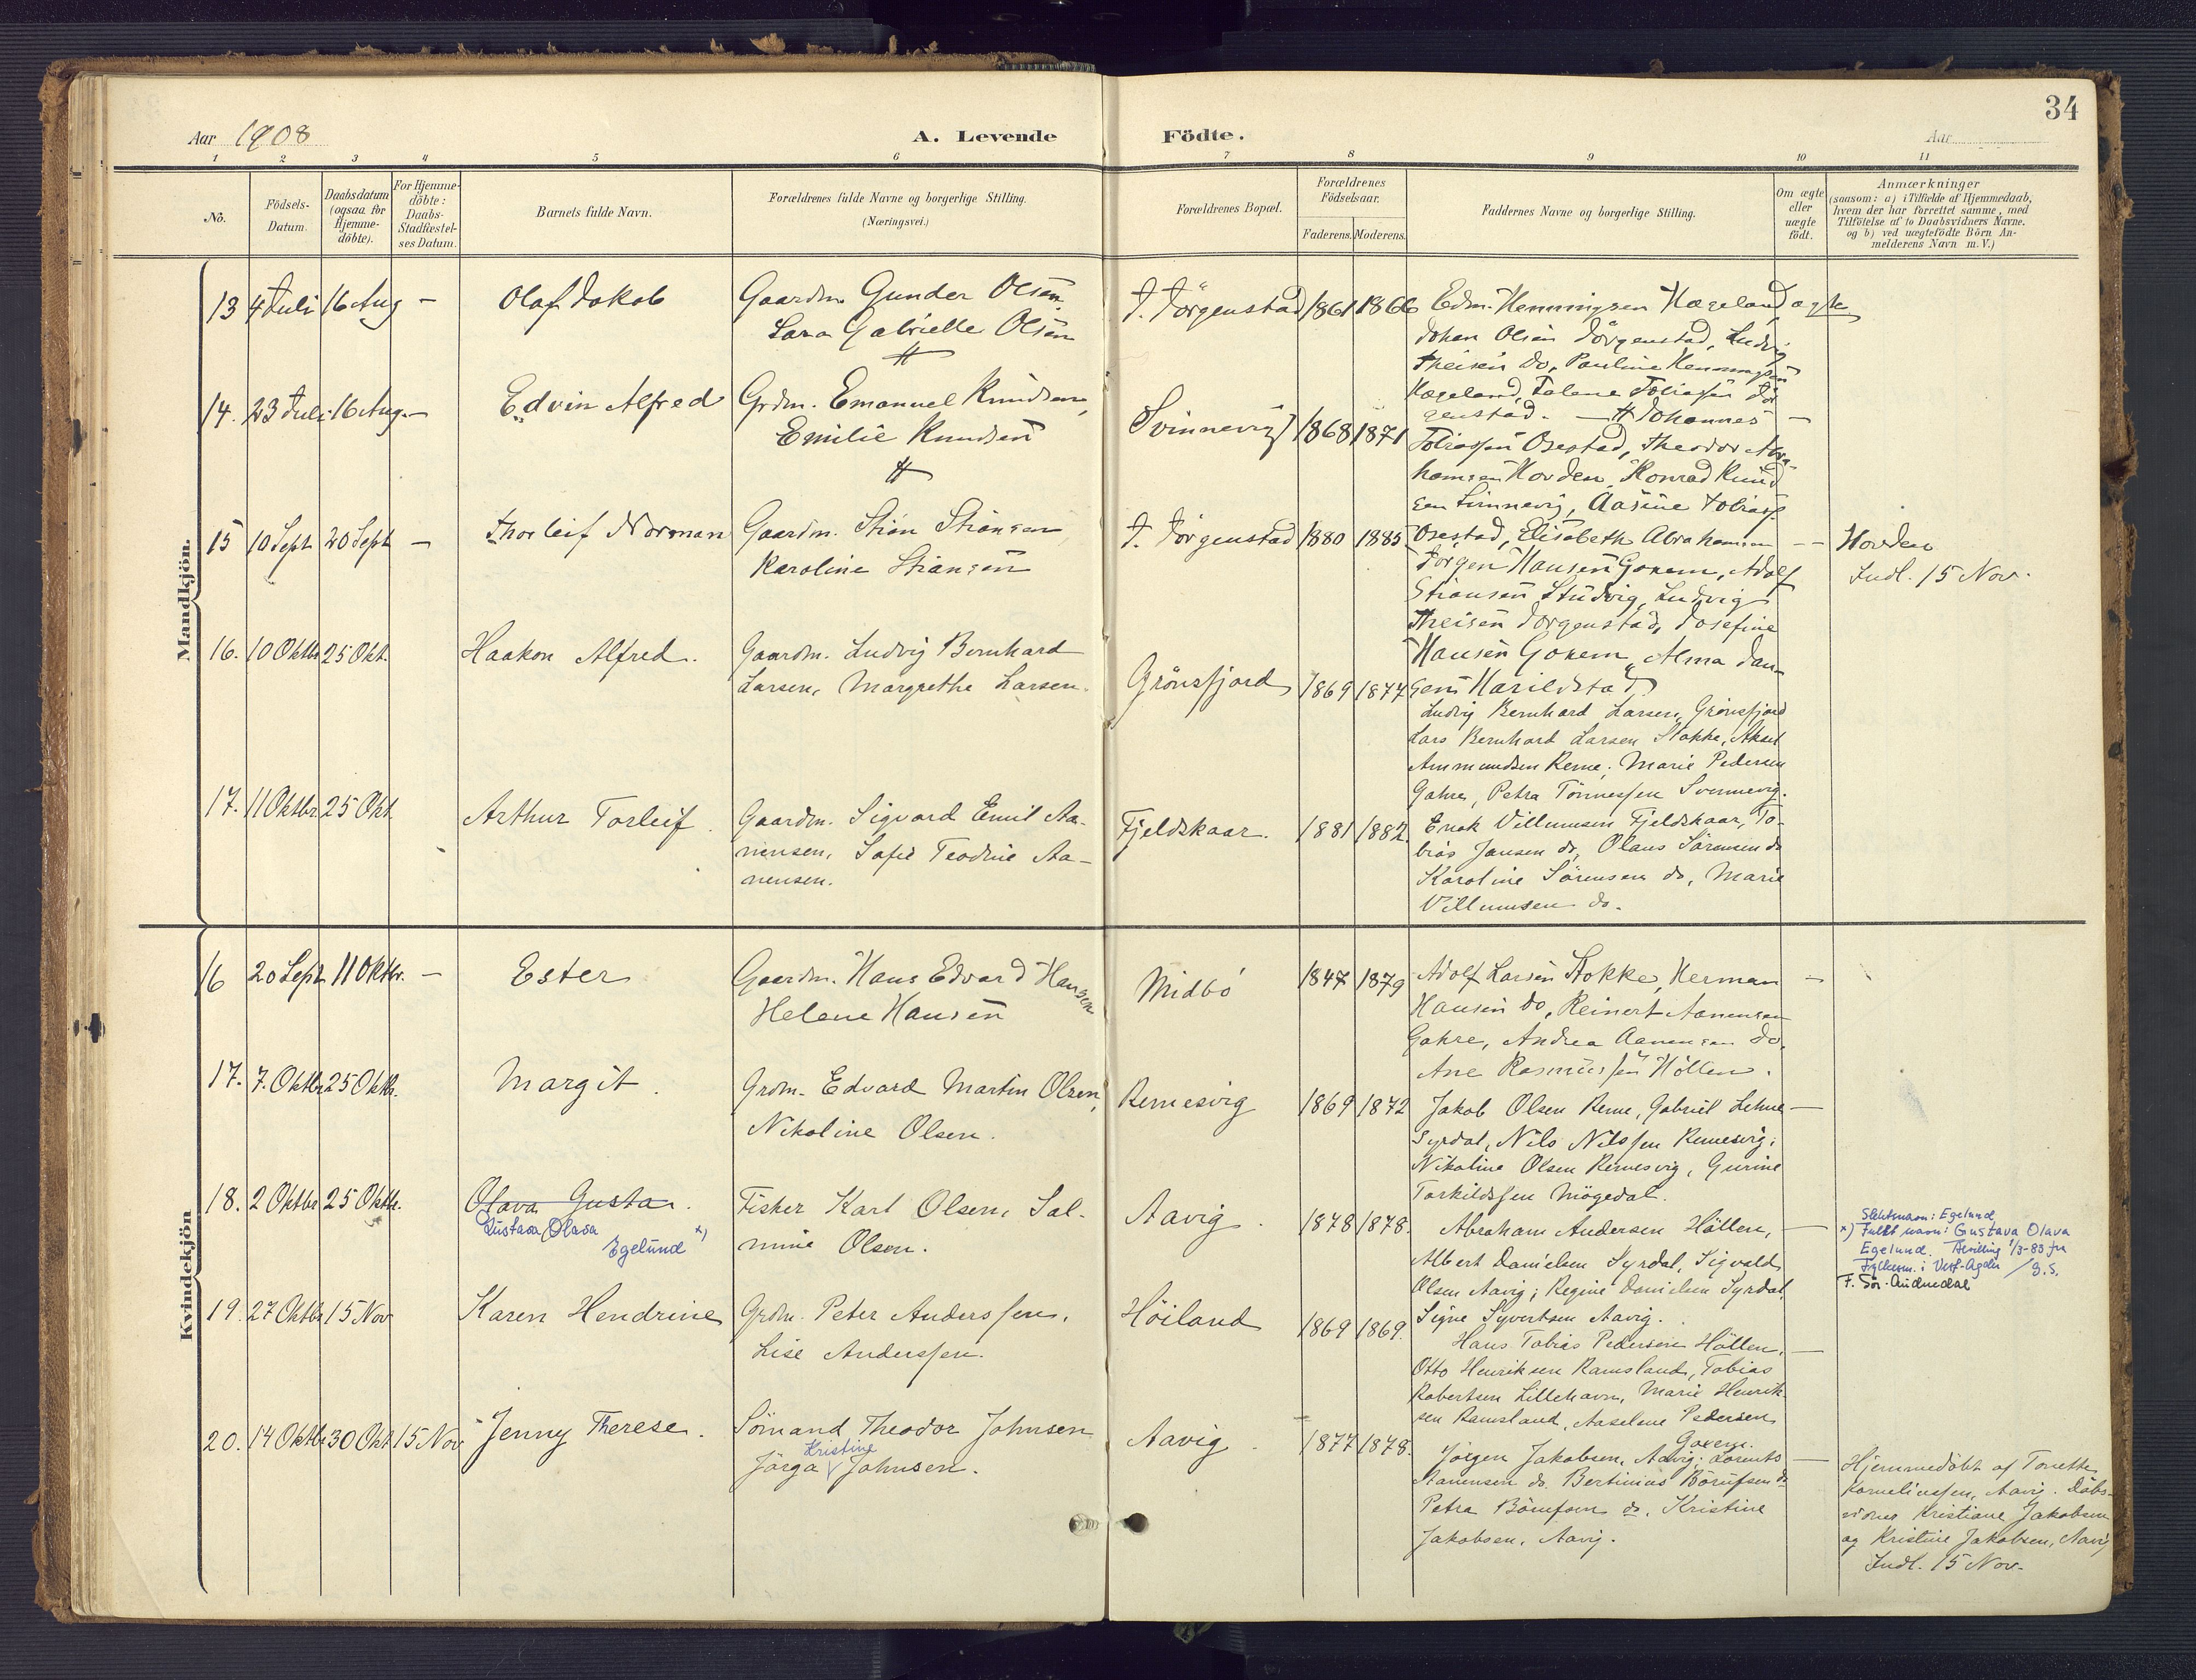 34
Aar 1908
A. Levende Födte.
Aar
1 2 3 4 5 6 7 8 9 10 11
No.
Födsels-Datum.
Daabsdatum (ogsaa for Hjemme-döbte).
For Hjemme-döbte: Daabs-Stadfæstel-ses Datum.
Barnets fulde Navn.
Forældrenes fulde Navne og borgerlige Stilling.
(Næringsvei.)
Forældrenes Bopæl.
Forældrenes Födselsaar.
Faderens. Moderens.
Faddernes Navne og borgerlige Stilling.
Om ægte eller uægte födt.
Anmærkninger
(saasom: a) i Tilfælde af Hjemmedaab,
hvem der har forrettet samme, med
Tilföielse af to Daabsvidners Navne.
og b) ved uægtefödte Börn An-
melderens Navn m. V.)
Mandkjön.
13 4 Juli 16 Aug - Olaf Jakob
Gaardm. Gunder Olsen
Sara Gabrielle Olsen
J. Jörgenstad 1861 1866
Edm. Henningsen Hægeland ægte
Johan Olsen Jörgenstad, Ludvig
Theisen do, Pauline Henningsen
Hægeland, Talene Tobiassen Jör
genstad. - # Johannes -
14. 23 Juli 16 Aug. - Edvin Alfred
Grdm. Emanuel Knudsen,
Emilie Knudsen
Svinnevig 1868 1871
Tobiassen Osestad, Theodor Abra-
hamsen Hovden, Konrad Knud
sen Svinnevig, Aasine Tobiass.
15 10 Sept 20 Sept - Thorleif Norman
Gaardm. Stian Stiansen
Karoline Stiansen
J. Jörgenstad 1880 1885
Osestad, Elisabeth Abrahamsen - - Hovden
Jörgen Hansen Goxem, Adolf
Indl. 15 Nov.
Stiansen Studvig, Ludvig
Theisen Jörgenstad, Josefine
Hansen Goxem, Alma Jan-
sen Harildstad
16. 10 Oktbr 25 Okt. Haakon Alfred.
Gaardm. Ludvig Bernhard
Larsen, Margrethe Larsen.
Grönsfjord 1869 1877
Ludvig Bernhard Larsen, Grönsfjord
Lars Bernhard Larsen Stokke, Aksel
Ammundsen Reme; Marie Pedersen
Gahre, Petra Tönnessen Svennevig.
17. 11 Oktbr. 25 Okt. Arthur Torleif.
Gaardm. Sigvard Emil Aa-
nensen, Sofie Teodine Aa-
nensen.
Fjeldskaar. 1881 1882.
Enok Villumsen Fjeldskaar, To-
bias Jansen do, Olaus Sörensen do
Karoline Sörensen do, Marie
Villumsen do.
Kvindekjön
16 20 Sept 11 Oktbr. - Ester
Gaardm. Hans Edvard Hansen
Helene Hansen
Midbö 1847 1879
Adolf Larsen Stokke, Herman -
Hansen do, Reinert Aanensen
Gahre, Andrea Aanensen do,
Ane Rasmussen Höllen.
17. 7. Oktbr 25 Oktbr. Margit.
Grdm. Edvard Martin Olsen,
Nikoline Olsen.
Remesvig 1869 1872
Jakob Olsen Reme, Gabriel Lehne -
Syrdal, Nils Nilssen Remesvig;
Nikoline Olsen Remesvig, Gurine
Torkildssen Mögedal.
18. 2 Oktbr 25 Oktbr. Olava Gusta.
Gustava Olava
Egelund x)
Fisker Karl Olsen, Sal-
mine Olsen.
Aavig. 1878 1878.
Abraham Andersen Höllen, -
Albert Danielsen Syrdal, Sigvald
Olsen Aavig; Regine Danielsen Syrdal,
Signe Syvertsen Aavig.
Slektsnavn: Egelund
x) Fullt navn: Gustava Olava
Egelund. Bevilling 1/3-83 fra
Fylkesm. i Vest-Agder / S.S.
F. Sør-Audnedal
19. 27 Oktbr 15 Nov Karen Hendrine
Grdm. Peter Anderssen,
Lise Anderssen.
Höiland 1869 1869.
Hans Tobias Pedersen Höllen, -
Otto Henriksen Ramsland, Tobias
Robertsen Lillehavn, Marie Henrik
sen Ramsland, Aaselene Pedersen
Goxem.
20. 14 Oktbr 30 Okt 15 Nov Jenny Therese.
Sömand Theodor Johnsen
Kristine
Jörga Johnsen.
Aavig. 1877 1878.
Jörgen Jakobsen, Aavig; Lorents -
Aanensen do. Bertinius Börufsen do
Petra Börufsen do, Kristine
Jakobsen, Aavig.
Hjemmedöbt af Tonette
Korneliussen, Aavig. Daabs-
vidner Kristiane Jakobsen
og Kristine Jakobsen, Aavig
Indl. 15 Nov.